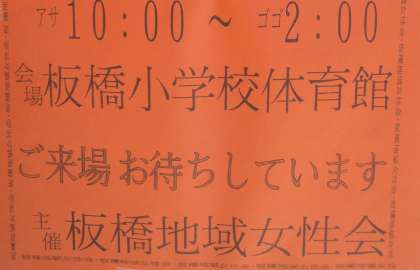 アサ 10:00 ~ ゴゴ 2:00
会場 板橋小学校体育館
ご来場お待ちしています
主催 板橋地域女性会